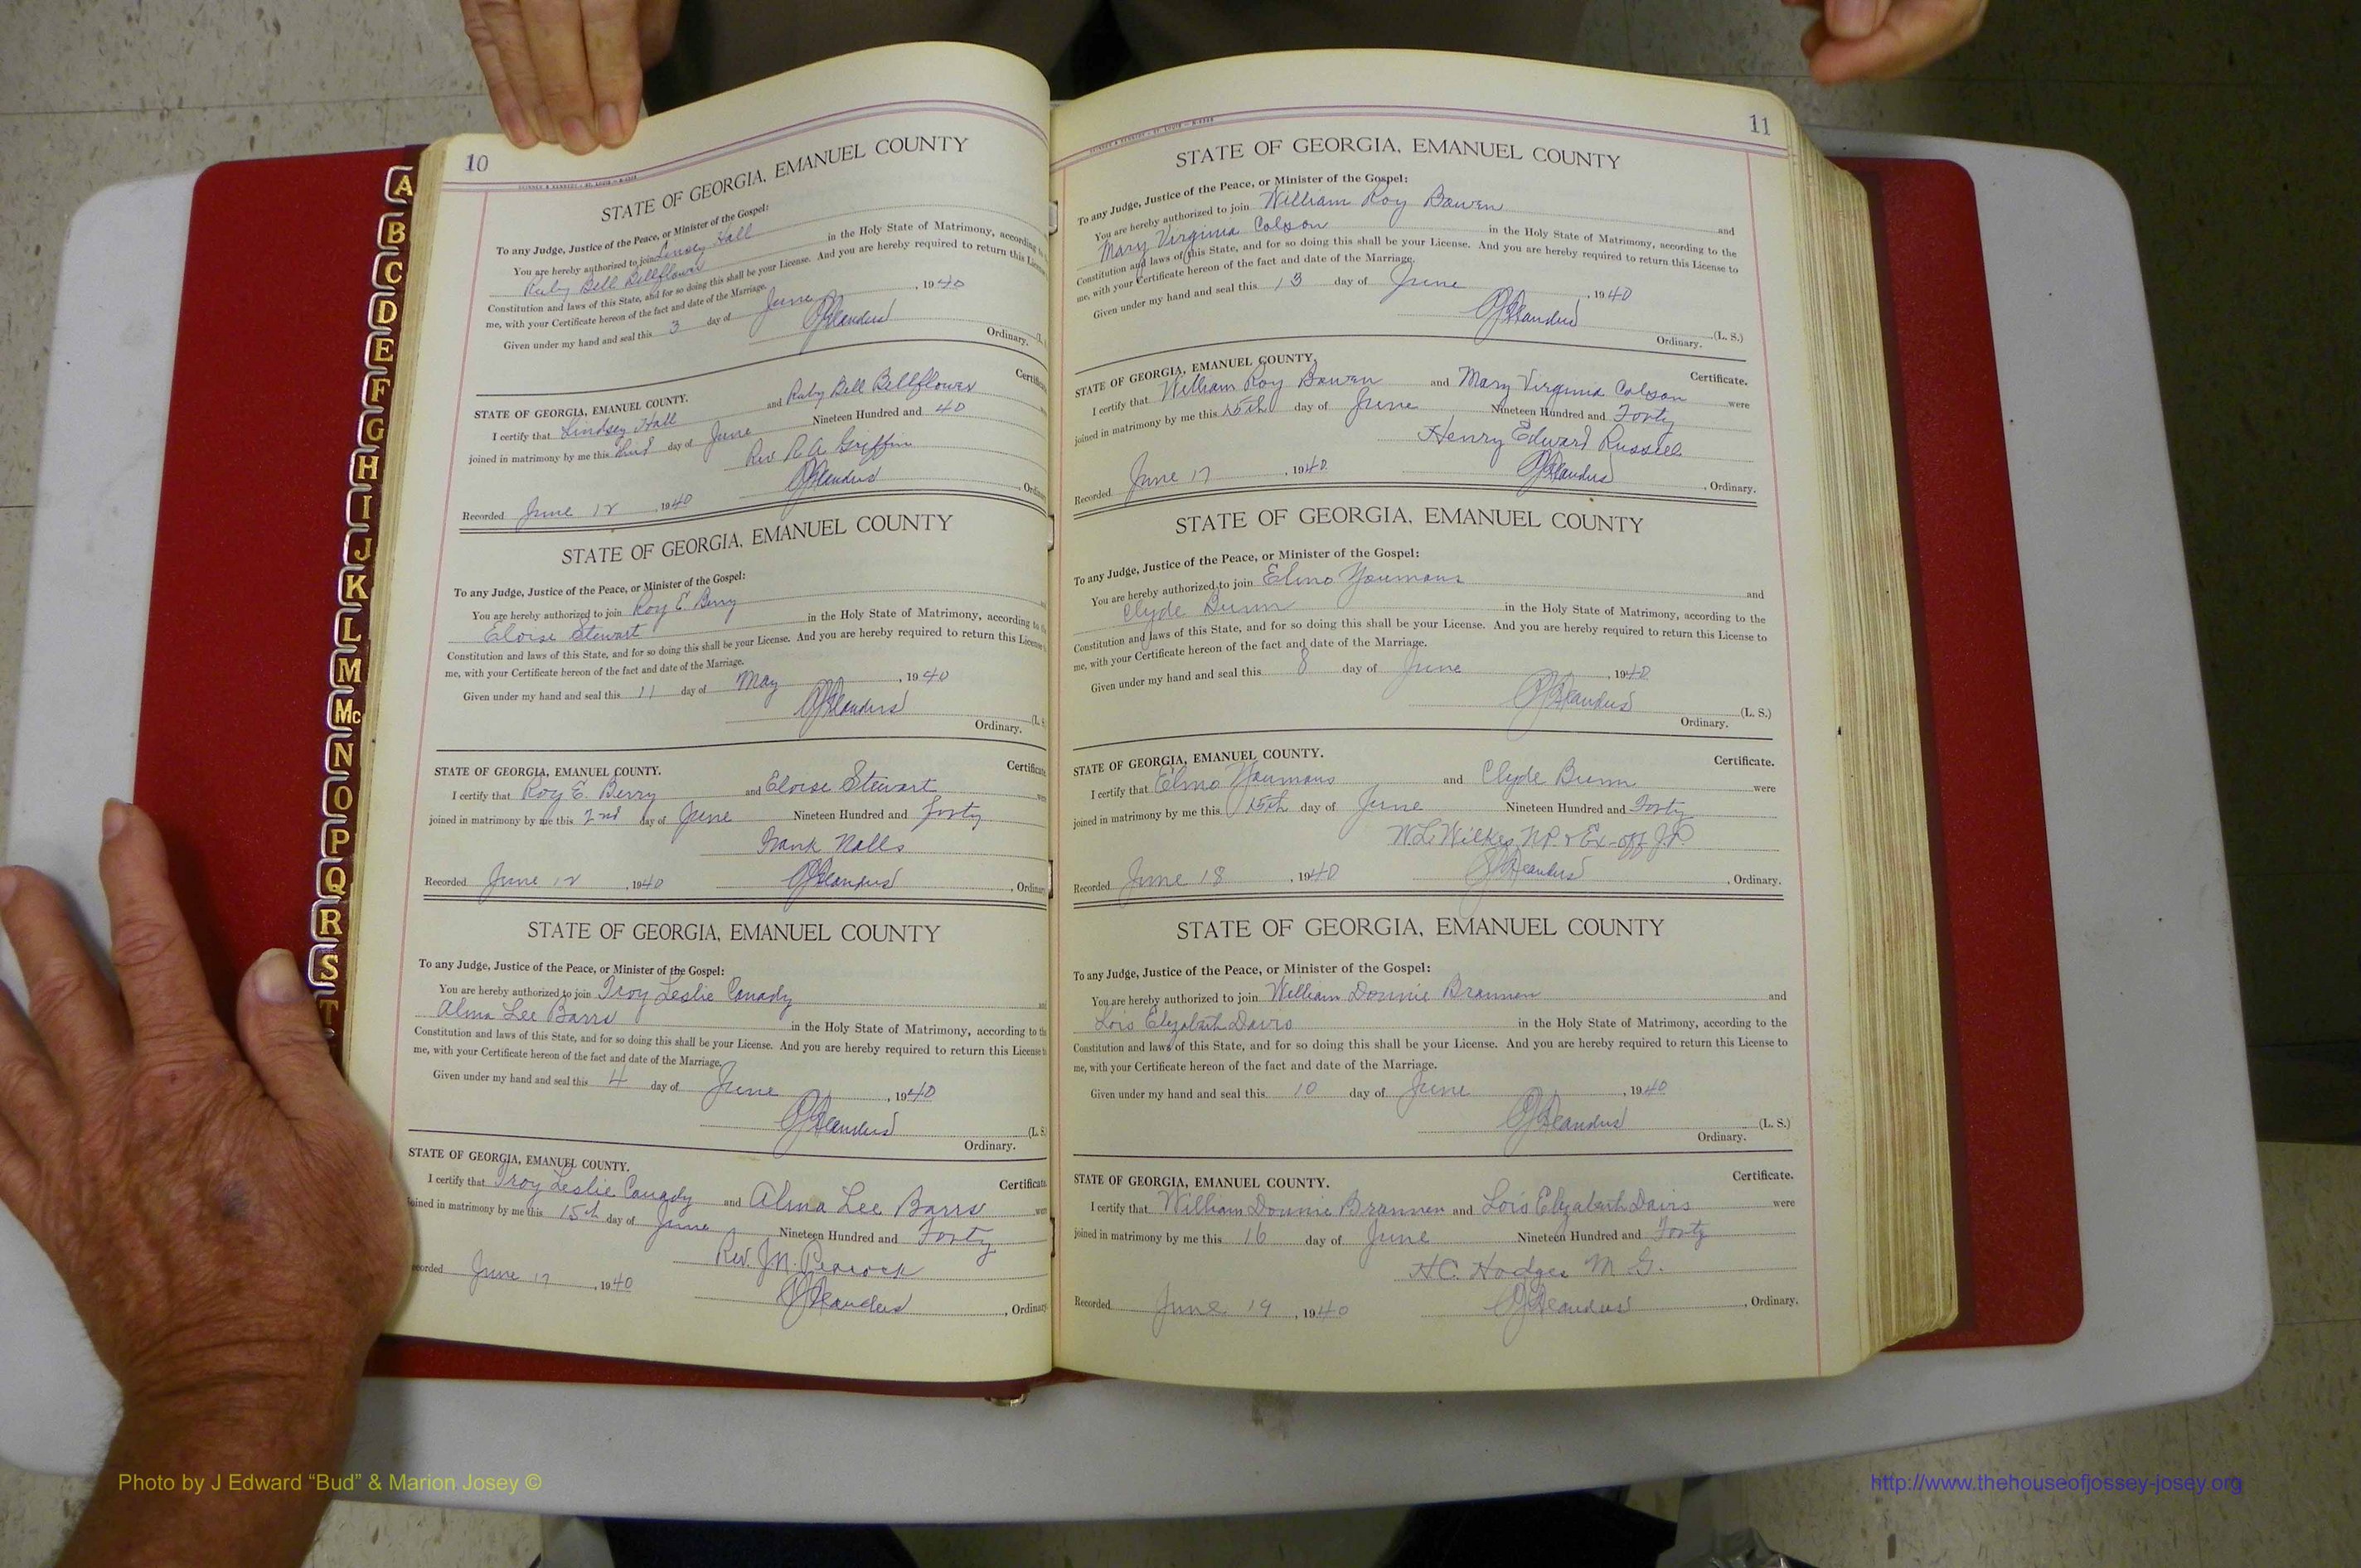 10
STATE OF GEORGIA, EMANUEL COUNTY
To any Judge, Justice of the Peace, or Minister of the Gospel:
You are hereby authorized to join Linsey Hall
Ruby Bell Bellflower in the Holy State of Matrimony, according
Constitution and laws of this State, and for so doing this shall be your License. And you are hereby required to return this License
me, with your Certificate hereon of the fact and date of the Marriage.
Given under my hand and seal this 3 day of June, 1940
Ordinary. (L.
STATE OF GEORGIA, EMANUEL COUNTY. Certificate
I certify that Lindsey Hall and Ruby Bell Bellflower
joined in matrimony by me this third day of June Nineteen Hundred and 40
Rev R A Griffin
Recorded June 12, 1940 , Ordinary
STATE OF GEORGIA, EMANUEL COUNTY
To any Judge, Justice of the Peace, or Minister of the Gospel:
You are hereby authorized to join Roy E Berry and
Eloise Stewart in the Holy State of Matrimony, according to the
Constitution and laws of this State, and for so doing this shall be your License. And you are hereby required to return this License to
me, with your Certificate hereon of the fact and date of the Marriage.
Given under my hand and seal this 11 day of May, 1940
(L. S.
Ordinary.
STATE OF GEORGIA, EMANUEL COUNTY. Certificate
I certify that Roy E. Berry and Eloise Stewart were
joined in matrimony by me this 2nd day of June Nineteen Hundred and forty
Frank Nalls
Recorded June 12, 1940 , Ordinary
STATE OF GEORGIA, EMANUEL COUNTY
To any Judge, Justice of the Peace, or Minister of the Gospel:
You are hereby authorized to join Troy Leslie Canady and
Alma Lee Barrs in the Holy State of Matrimony, according to the
Constitution and laws of this State, and for so doing this shall be your License. And you are hereby required to return this License to
me, with your Certificate hereon of the fact and date of the Marriage.
Given under my hand and seal this 4 day of June, 1940
(L. S.
Ordinary.
STATE OF GEORGIA, EMANUEL COUNTY.
Certificate
I certify that Troy Leslie Canady and Alma Lee Barrs were
joined in matrimony by me this 15th day of June Nineteen Hundred and Forty
Rev. J.M. Peacock
ecorded June 17, 1940 , Ordinary
11
STATE OF GEORGIA, EMANUEL COUNTY
To any Judge, Justice of the Peace, or Minister of the Gospel:
You are hereby authorized to join William Roy Bowen and
Mary Virginia Colson in the Holy State of Matrimony, according to the
Constitution and laws of this State, and for so doing this shall be your License. And you are hereby required to return this License to
me, with your Certificate hereon of the fact and date of the Marriage.
Given under my hand and seal this 13 day of June, 1940
(L. S.)
Ordinary.
STATE OF GEORGIA, EMANUEL COUNTY. Certificate.
I certify that William Roy Bowen and Mary Virginia Colson were
joined in matrimony by me this 15th day of June Nineteen Hundred and Forty
Henry Edward Russell
Recorded June 17, 1940 , Ordinary.
STATE OF GEORGIA, EMANUEL COUNTY
To any Judge, Justice of the Peace, or Minister of the Gospel:
You are hereby authorized to join Elmo Youmans and
Clyde Bunn in the Holy State of Matrimony, according to the
Constitution and laws of this State, and for so doing this shall be your License. And you are hereby required to return this License to
me, with your Certificate hereon of the fact and date of the Marriage.
Given under my hand and seal this 8 day of June, 1940
(L. S.)
Ordinary.
STATE OF GEORGIA, EMANUEL COUNTY. Certificate.
I certify that Elmo Youmans and Clyde Bunn were
joined in matrimony by me this 15th day of June Nineteen Hundred and Forty
W.L. Wilkes NP & Ex-off J.P.
Recorded June 18, 1940 , Ordinary.
STATE OF GEORGIA, EMANUEL COUNTY
To any Judge, Justice of the Peace, or Minister of the Gospel:
You are hereby authorized to join William Donnie Brannen and
Lois Elizabeth Davis in the Holy State of Matrimony, according to the
Constitution and laws of this State, and for so doing this shall be your License. And you are hereby required to return this License to
me, with your Certificate hereon of the fact and date of the Marriage.
Given under my hand and seal this 10 day of June, 1940
(L. S.)
Ordinary.
STATE OF GEORGIA, EMANUEL COUNTY. Certificate.
I certify that William Donnie Brannen and Lois Elizabeth Davis were
joined in matrimony by me this 16 day of June Nineteen Hundred and Forty
H.C. Hodges M.G.
Recorded June 19, 1940 , Ordinary.
A
B
C
D
E
F
G
H
I
J
K
L
M
Mc
N
O
P
Q
R
S
T
Photo by J Edward “Bud” & Marion Josey ©
http://www.thehouseofjossey-josey.org